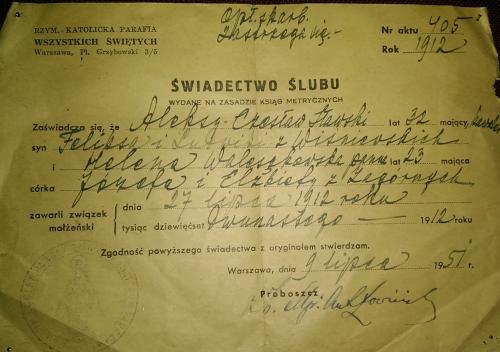 RZYM.-KATOLICKA PARAFIA
WSZYSTKICH ŚWIĘTYCH
Warszawa, Pl. Grzybowski 3/5
Opł. skarb.
zastrzega się.-
Nr aktu 405
Rok 1912
ŚWIADECTWO ŚLUBU
WYDANE NA ZASADZIE KSIĄG METRYCZNYCH
Zaświadcza się, że Aleksy-Czesław lat 32 mający
syn Feliksa i Ludwiki z Wiśniewskich
i Helena panna lat 23 mająca
córka Józefa i Elżbiety z
zawarli związek małżeński
dnia 27 lipca 1912 roku
tysiąc dziewięćset dwunastego — 1912 roku
Zgodność powyższego świadectwa z oryginałem stwierdzam.
Warszawa, dnia 9 lipca 1951 r.
Proboszcz,